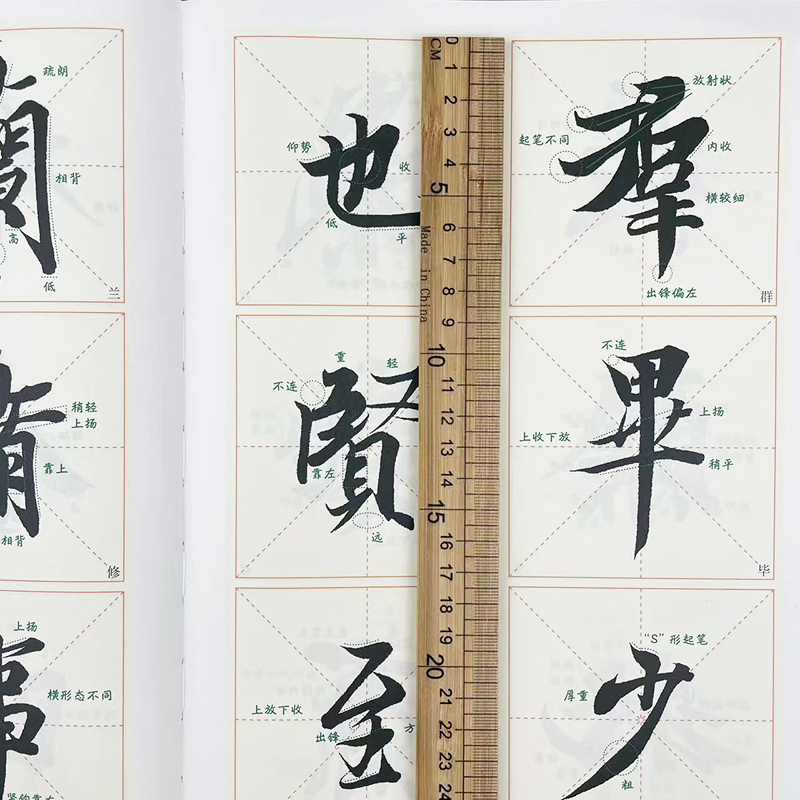 疏朗
相背
高
低
兰
稍轻
上扬
靠上
相背
修
上扬
横形态不同
竖钩靠左
也
仰势
收
低
平
賢
重
轻
不连
靠左
远
至
上放下收
出锋
方
CM
0
1
2
3
4
5
6
7
8
9
10
11
12
13
14
15
16
17
18
19
20
21
22
23
24
Made in China
羣
放射状
起笔不同
内收
横较细
出锋偏左
群
畢
不连
上扬
上收下放
稍平
毕
少
“S”形起笔
厚重
粗